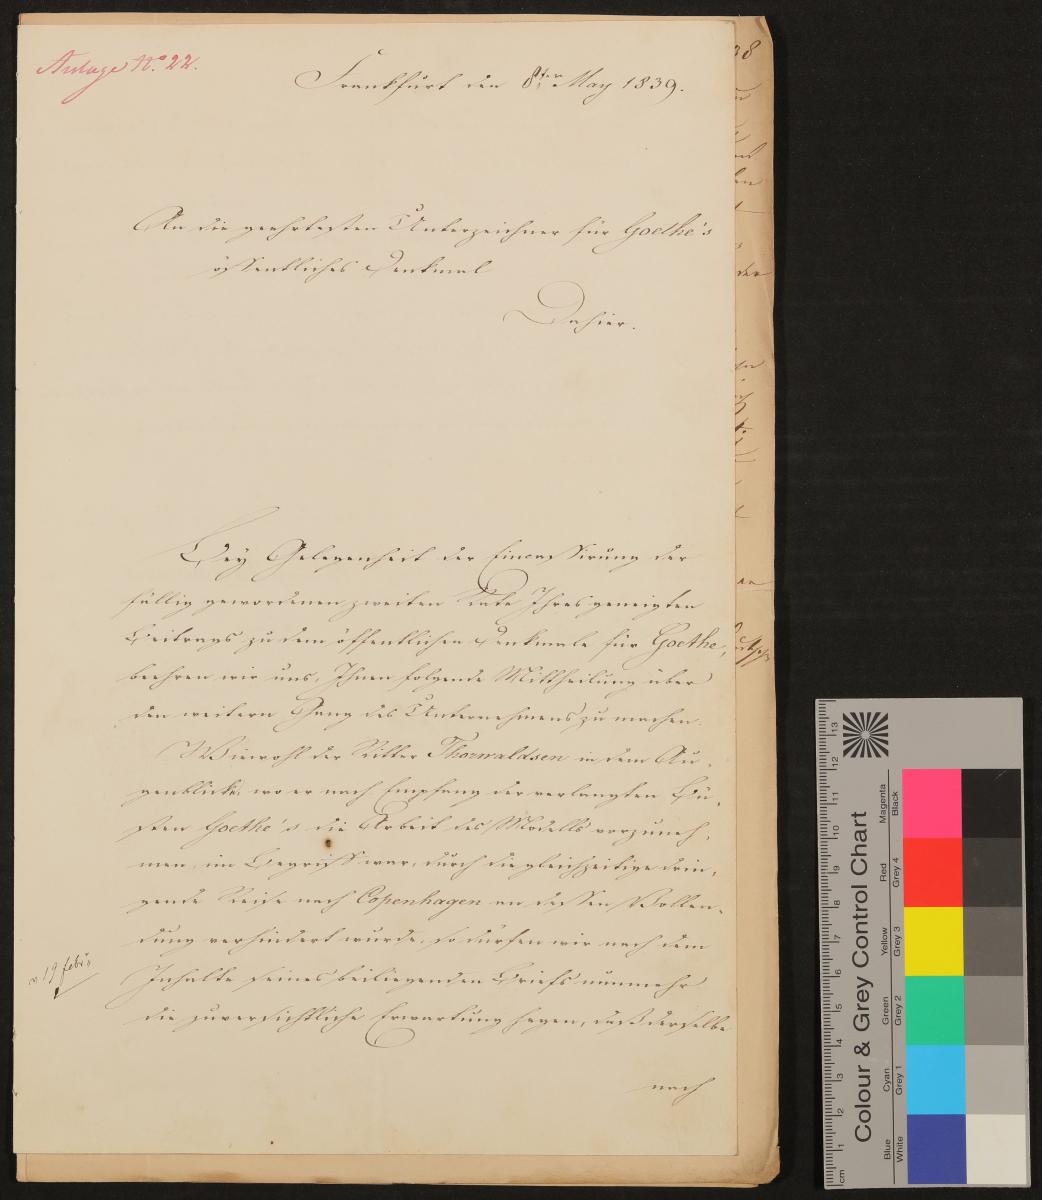 Anlage No. 22.
Frankfurt den 8ten May 1839.
An die geehrtesten Unterzeichner für Goethe's
öffentliches Denkmal
Dahier.
Bey Gelegenheit der Eincassirung der
fällig gewordenen zweiten Rate Ihres geneigten
Beitrags zu dem öffentlichen Denkmale für Goethe,
beehren wir uns, Ihnen folgende Mittheilung über
den weitern Gang des Unternehmens zu machen.
Wiewohl der Ritter Thorwaldsen in dem Au-
genblicke, wo er nach Empfang der verlangten Bü-
sten Goethe's die Arbeit des Modells vorzuneh-
men im Begriff war, durch die gleichzeitige drin-
gende Reise nach Copenhagen an dessen Vollen-
dung verhindert wurde, so dürfen wir nach dem
v. 19 febr.
Inhalte seines beiliegenden Briefs nunmehr
die zuversichtliche Erwartung hegen, daß derselbe
nach
38
der
Colour & Grey Control Chart
Blue Cyan Green Yellow Red Magenta
White Grey 1 Grey 2 Grey 3 Grey 4 Black
cm 1 2 3 4 5 6 7 8 9 10 11 12 13